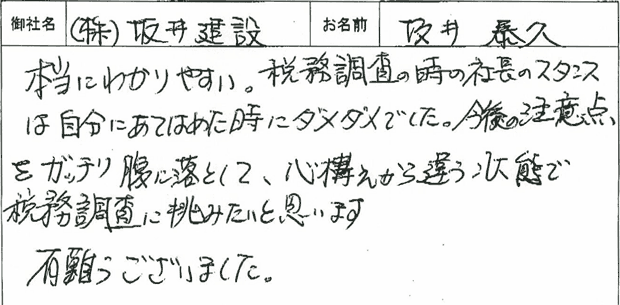 御社名 (株)坂井建設 お名前 坂井 泰久
本当にわかりやすい。税務調査の時の社長のスタンス
は自分にあてはめた時にダメダメでした。今後の注意点、
をガッチリ腹に落として、心構えから違う状態で
税務調査に挑みたいと思います
有難うございました。